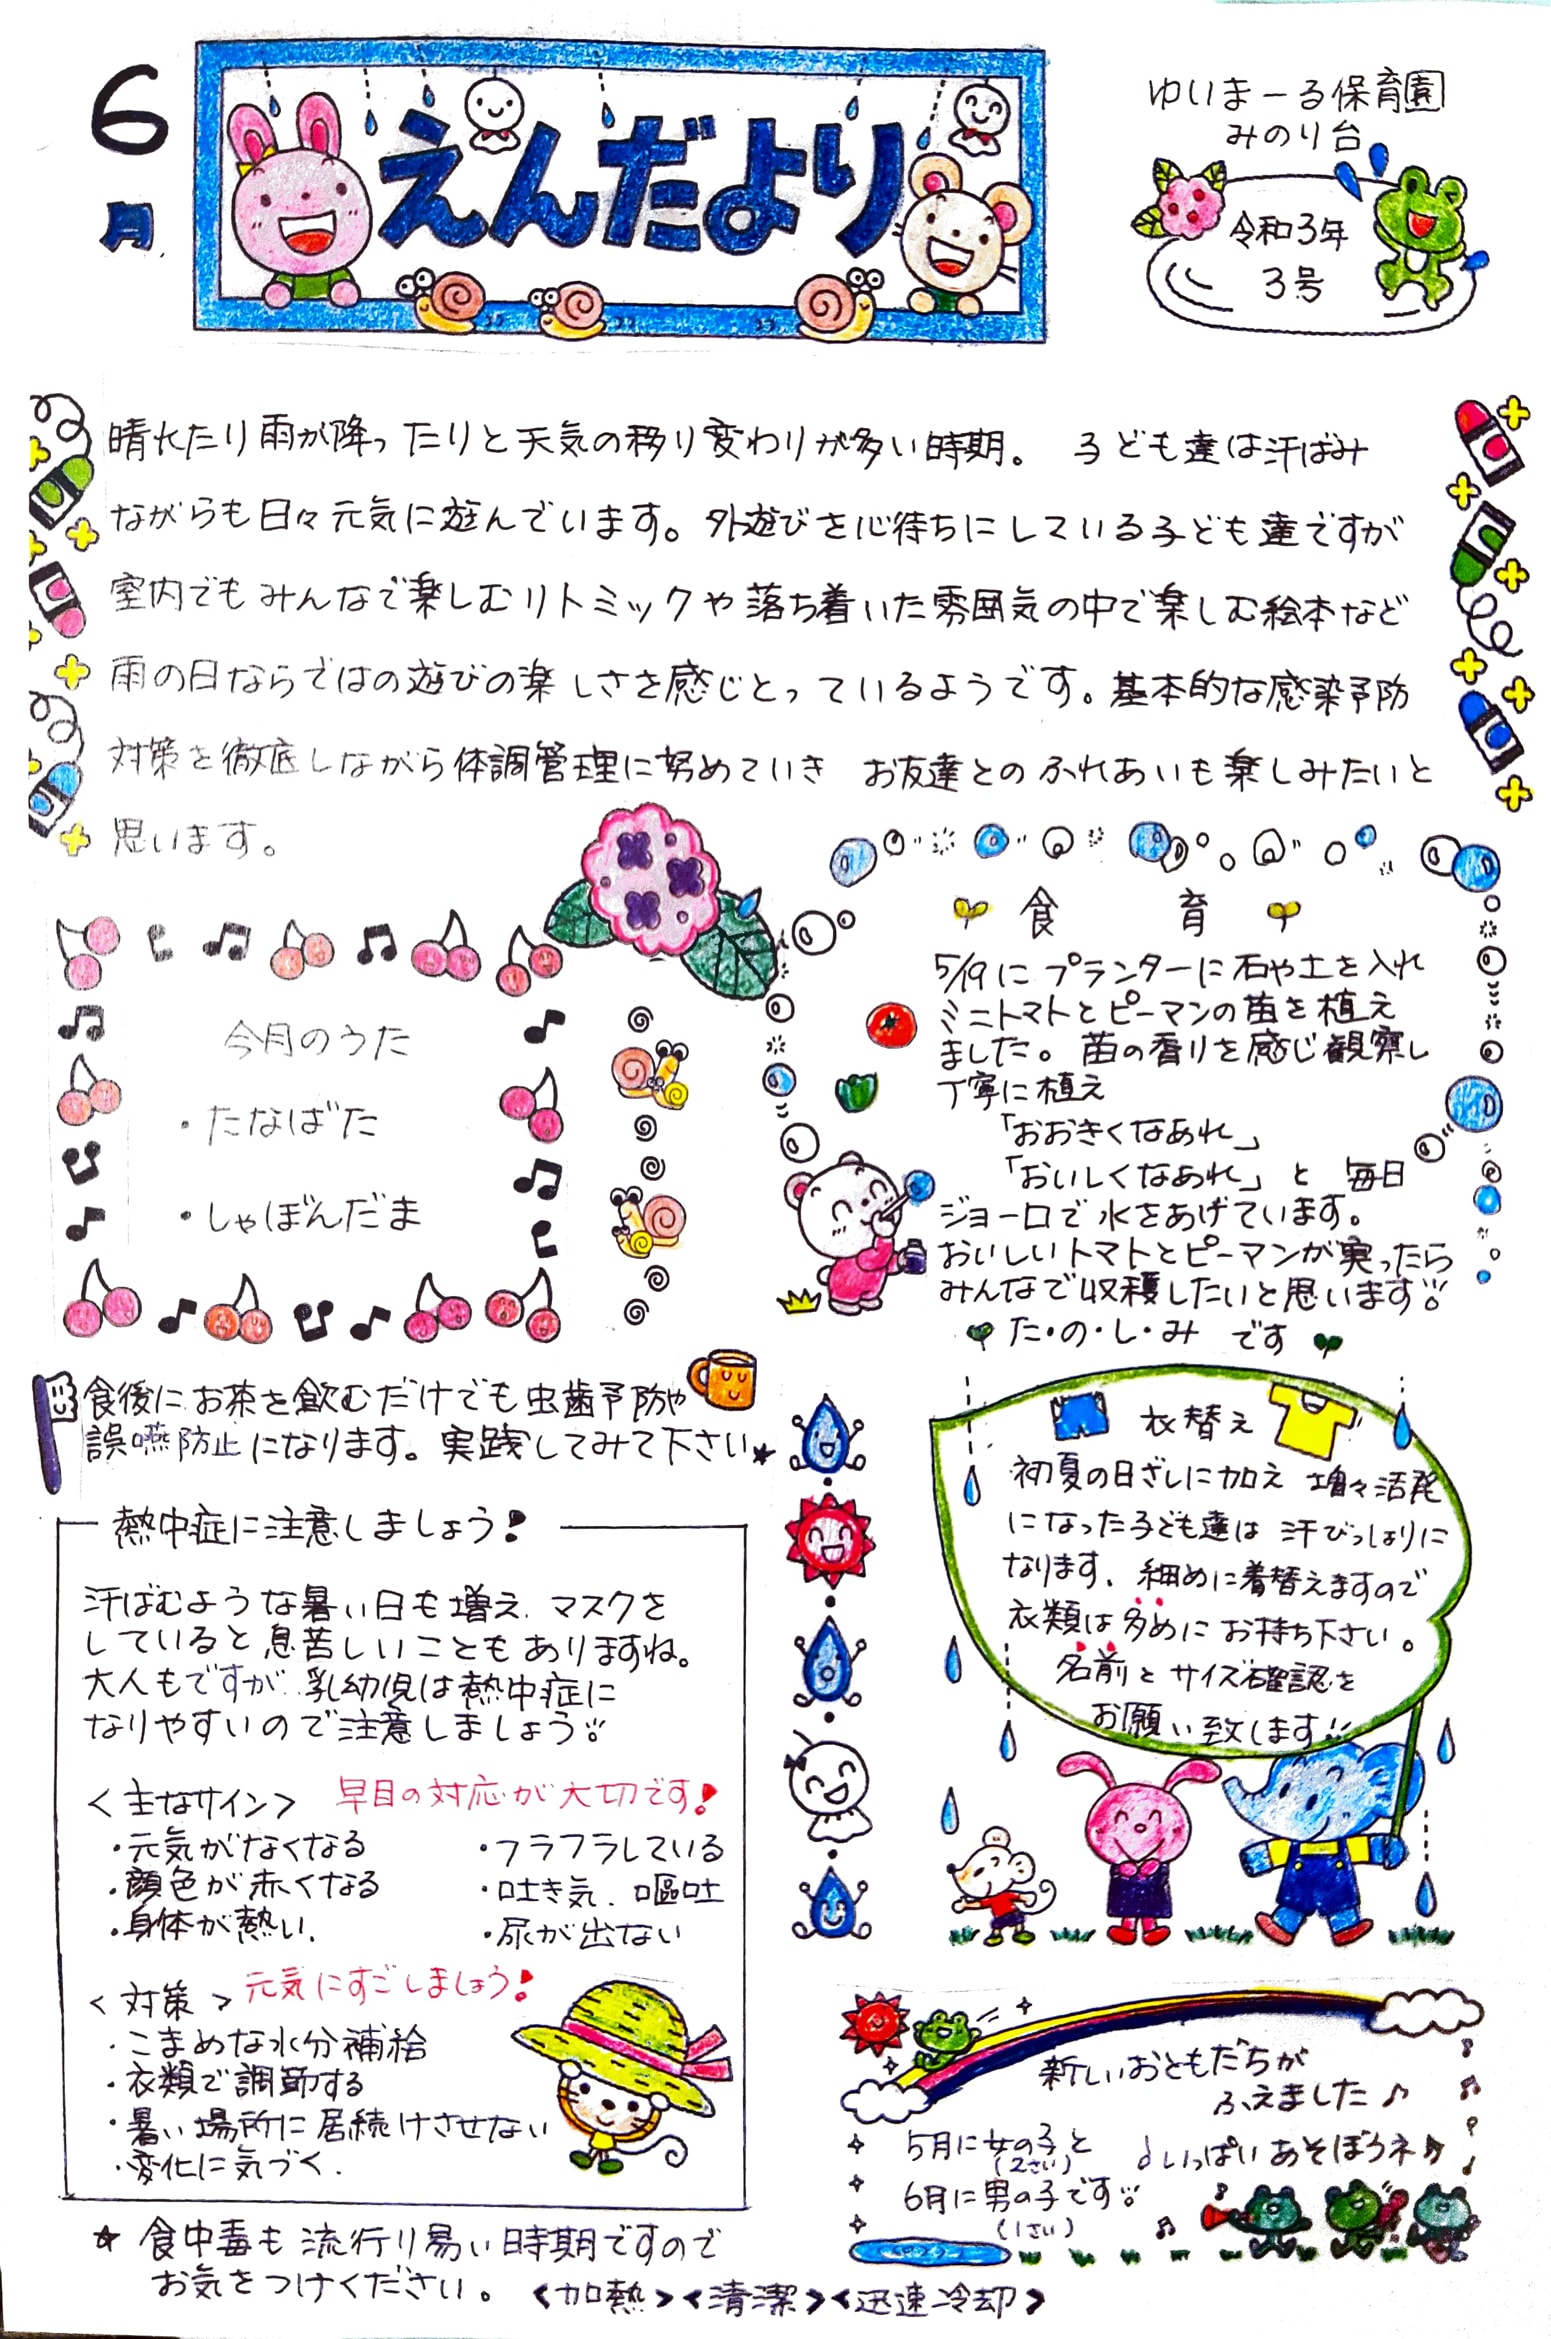 6
月
えんだより
ゆいまーる保育園
みのり台
令和3年
3号
晴れたり雨が降ったりと天気の移り変わりが多い時期。 子ども達は汗ばみ
ながらも日々元気に遊んでいます。外遊びを心待ちにしている子ども達ですが
室内でもみんなで楽しむリトミックや落ち着いた雰囲気の中で楽しむ絵本など
雨の日ならではの遊びの楽しさを感じとっているようです。基本的な感染予防
対策を徹底しながら体調管理に努めていき お友達とのふれあいも楽しみたいと
思います。
今月のうた
・たなばた
・しゃぼんだま
食育
5/19にプランターに石や土を入れ
ミニトマトとピーマンの苗を植え
ました。苗の香りを感じ観察し
丁寧に植え
「おおきくなあれ」
「おいしくなあれ」と 毎日
ジョーロで水をあげています。
おいしいトマトとピーマンが実ったら
みんなで収穫したいと思います!!
た・の・し・み です
食後にお茶を飲むだけでも虫歯予防や
誤嚥防止になります。実践してみて下さい★
熱中症に注意しましょう!
汗ばむような暑い日も増え、マスクを
していると息苦しいこともありますね。
大人もですが、乳幼児は熱中症に
なりやすいので注意しましょう!!
<主なサイン> 早目の対応が大切です!
・元気がなくなる ・フラフラしている
・顔色が赤くなる ・吐き気、嘔吐
・身体が熱い、 ・尿が出ない
<対策> 元気にすごしましょう!
・こまめな水分補給
・衣類で調節する
・暑い場所に居続けさせない
・変化に気づく、
★ 食中毒も流行り易い時期ですので
お気をつけください。 <加熱><清潔><迅速冷却>
衣替え
初夏の日ざしに加え 増々活発
になった子ども達は 汗びっしょりに
なります、細めに着替えますので
衣類は多めにお持ち下さい。
名前とサイズ確認を
お願い致します!!
新しいおともだちが
ふえました♪
5月に女の子と
(2さい)
♩いっぱいあそぼうネ♪
6月に男の子です!!
(1さい)